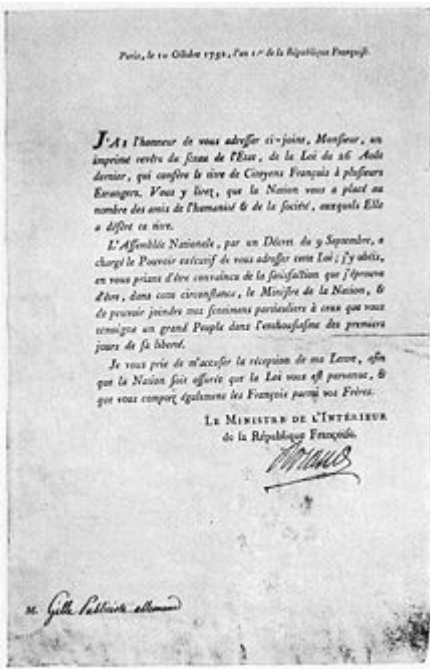 Paris, le 10 Octobre 1792, l'an 1.er de la République Françoise.
J'AI l'honneur de vous adresser ci-joint, Monsieur, un
imprimé revêtu du sceau de l'État, de la Loi du 26 Août
dernier, qui confère le titre de Citoyens François à plusieurs
Étrangers. Vous y lirez, que la Nation vous a placé au
nombre des amis de l'humanité & de la société, auxquels Elle
a déféré ce titre.
L'Assemblée Nationale, par un Décret du 9 Septembre, a
chargé le Pouvoir exécutif de vous adresser cette Loi; j'y obéis,
en vous priant d'être convaincu de la satisfaction que j'éprouve
d'être, dans cette circonstance, le Ministre de la Nation, &
de pouvoir joindre mes sentimens particuliers à ceux que vous
témoigne un grand Peuple dans l'enthousiasme des premiers
jours de sa liberté.
Je vous prie de m'accuser la réception de ma Lettre, afin
que la Nation soit assurée que la Loi vous est parvenue, &
que vous comptez également les François parmi vos Frères.
LE MINISTRE DE L'INTÉRIEUR
de la République Françoise.
Roland
M. Gille Publiciste allemand